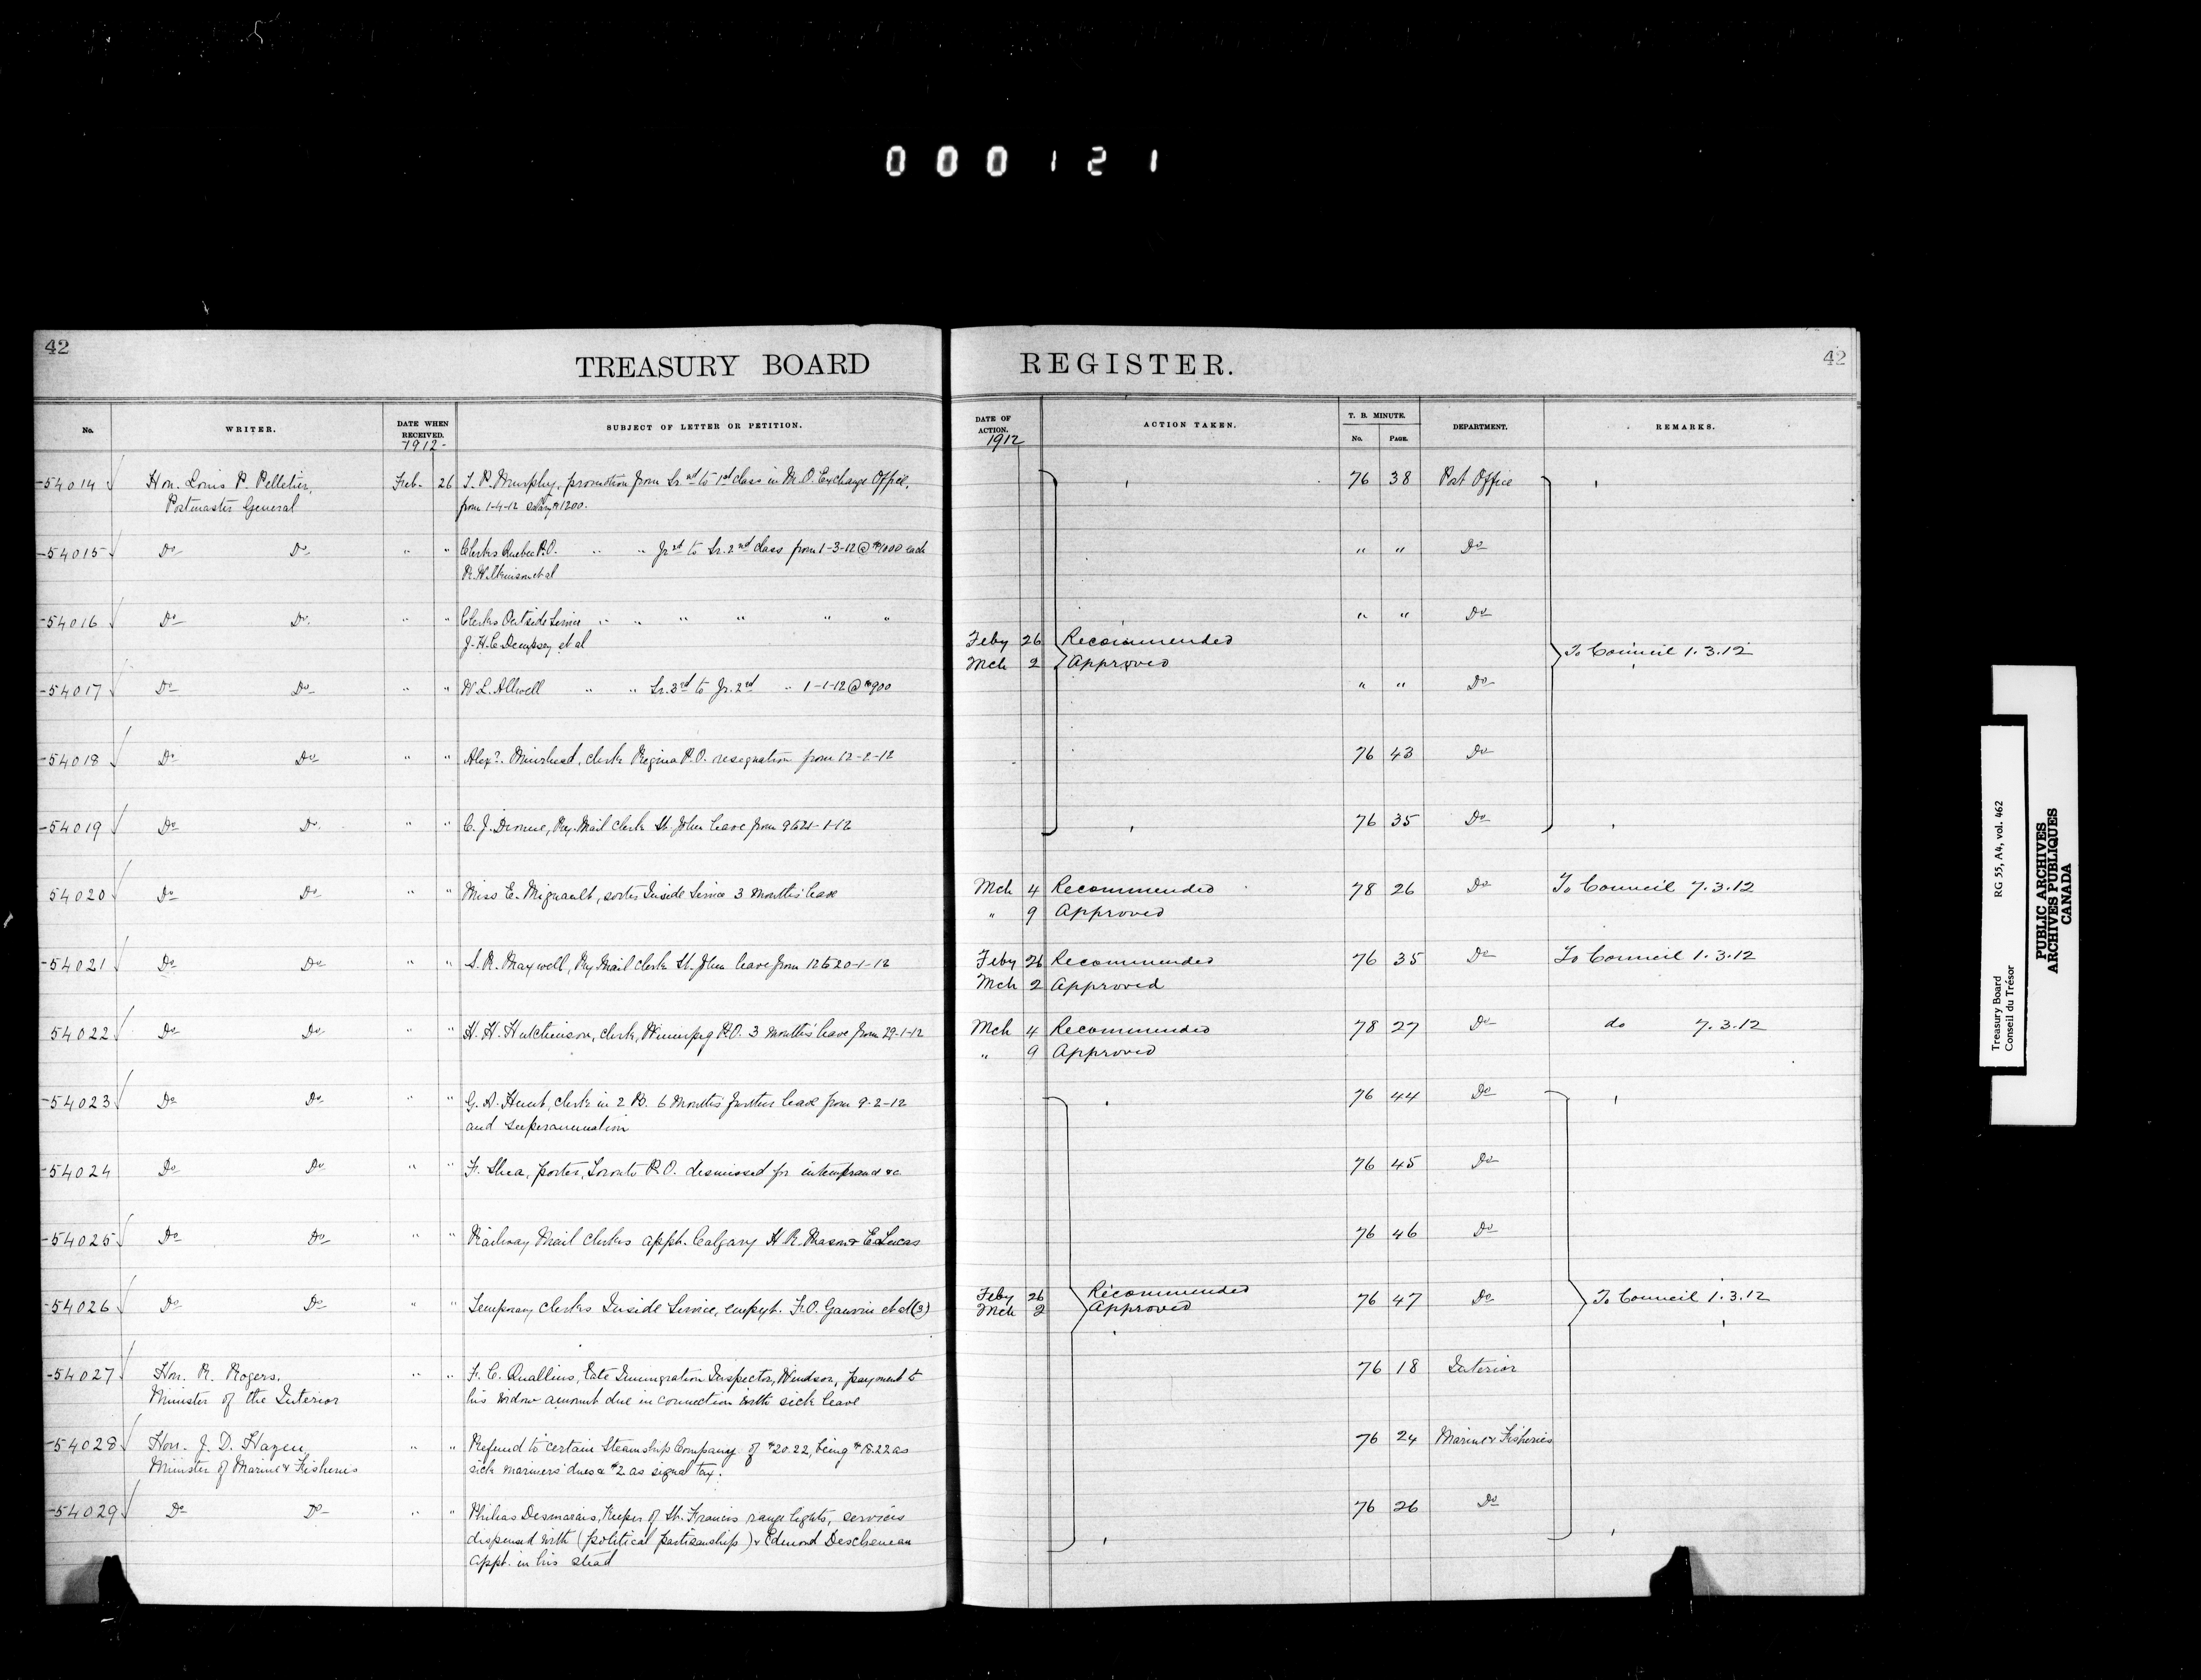 000121
42
TREASURY BOARD
REGISTER.
42
No.
WRITER.
DATE WHEN RECEIVED.
1912-
SUBJECT OF LETTER OR PETITION.
DATE OF ACTION.
1912
ACTION TAKEN.
T. B. MINUTE.
No.
PAGE.
DEPARTMENT.
REMARKS.
54014 Hon. Louis P. Pelletier, Feb. 26 Murphy, promotion from Sr. 2nd to 1st class in M.O. Exchange Office, 76 38 Post Office
Postmaster General from 1-4-12 salary $1200.
54015 Do Do " " Clerks Quebec P.O. " " Jr 2nd to Sr. 2nd class from 1-3-12 @ $1000 each " " Do
et al
54016 Do Do " " Clerks Outside Service " " " " " " " " Do
J. H. C. Dempsey et al Feby 26 Recommended
Mch 2 Approved To Council 1.3.12
54017 Do Do " " W. L. Allwell " " Sr. 3rd to Jr. 2nd " 1-1-12 @ $900 " " Do
54018 Do Do " " Alexr. Muirhead, clerk Regina P.O. resignation from 12-2-12 76 43 Do
54019 Do Do " " C. J. Dionne, Ry. Mail Clerk St. John leave from 9 to 21-1-12 76 35 Do
54020 Do Do " " Miss E. Mignault, sorter Inside Service 3 months' leave Mch 4 Recommended 78 26 Do To Council 7.3.12
" 9 Approved
54021 Do Do " " S. R. Maxwell, Ry Mail clerk St. John leave from 12 to 20-1-12 Feby 26 Recommended 76 35 Do To Council 1.3.12
Mch 2 Approved
54022 Do Do " " H. H. Hutchinson, clerk, Winnipeg P.O. 3 months' leave from 29-1-12 Mch 4 Recommended 78 27 Do do 7.3.12
" 9 Approved
54023 Do Do " " G. A. Hunt, clerk in 2 B. 6 months' further leave from 9-2-12 76 44 Do
and superannuation
54024 Do Do " " F. Shea, porter, Toronto P.O. dismissed for intemperance &c 76 45 Do
54025 Do Do " " Railway Mail Clerks appt. Calgary H. R. Mason & E. Lucas 76 46 Do
54026 Do Do " " Temporary clerks Inside Service, empyt. F. O. Gauvin et al (3) Feby 26 Recommended 76 47 Do To Council 1.3.12
Mch 2 Approved
54027 Hon. R. Rogers, " " F. C. Quallins, late Immigration Inspector, Windsor, payment to 76 18 Interior
Minister of the Interior his widow amount due in connection with sick leave
54028 Hon. J. D. Hazen " " Refund to certain Steamship Company of $20.22, being $18.22 as 76 24 Marine & Fisheries
Minister of Marine & Fisheries sick mariners' dues & $2 as signal tax.
54029 Do Do " " Philias Desmarais, Keeper of St. Francis range lights, services 76 26 Do
dispensed with (political partisanship) & Edmond Descheneau
appt. in his stead
Treasury Board RG 55, A4, vol. 462
Conseil du Trésor
PUBLIC ARCHIVES
ARCHIVES PUBLIQUES
CANADA